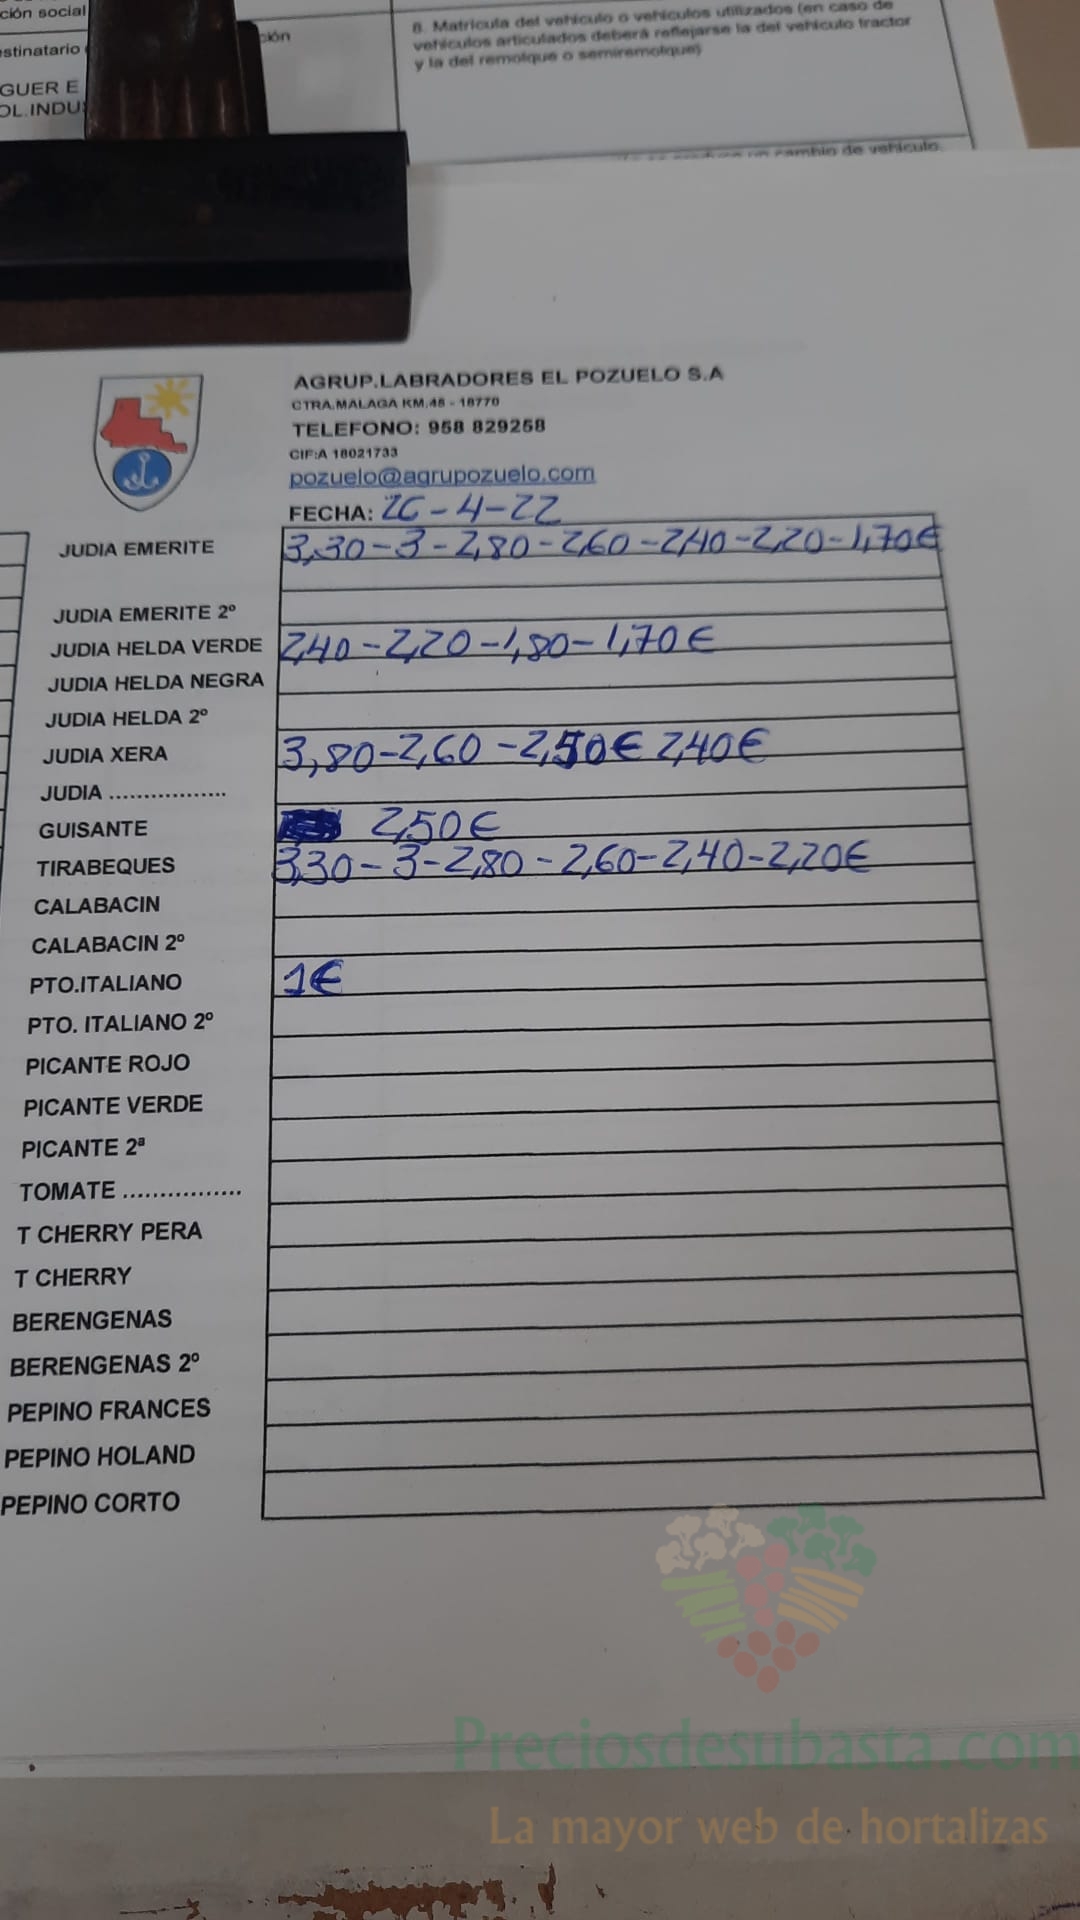 ción social
ción
8. Matricula del vehículo o vehículos utilizados (en caso de
vehículos articulados deberá reflejarse la del vehículo tractor
y la del remolque o semiremolque)
stinatario
GUER E
OL.INDUS
un cambio de vehículo,
AGRUP.LABRADORES EL POZUELO S.A
CTRA.MALAGA KM.45 - 18770
TELEFONO: 958 829258
CIF:A 18021733
pozuelo@agrupozuelo.com
FECHA: 26-4-22
JUDIA EMERITE 3,30-3-2,80-2,60-2,40-2,20-1,70€
JUDIA EMERITE 2º
JUDIA HELDA VERDE 2,40-2,20-1,80-1,70€
JUDIA HELDA NEGRA
JUDIA HELDA 2º
JUDIA XERA 3,80-2,60-2,50€ 2,40€
JUDIA .................
GUISANTE 2,50€
TIRABEQUES 3,30-3-2,80-2,60-2,40-2,20€
CALABACIN
CALABACIN 2º
PTO.ITALIANO 1€
PTO. ITALIANO 2º
PICANTE ROJO
PICANTE VERDE
PICANTE 2ª
TOMATE .................
T CHERRY PERA
T CHERRY
BERENGENAS
BERENGENAS 2º
PEPINO FRANCES
PEPINO HOLAND
PEPINO CORTO
Preciosdesubasta.com
La mayor web de hortalizas